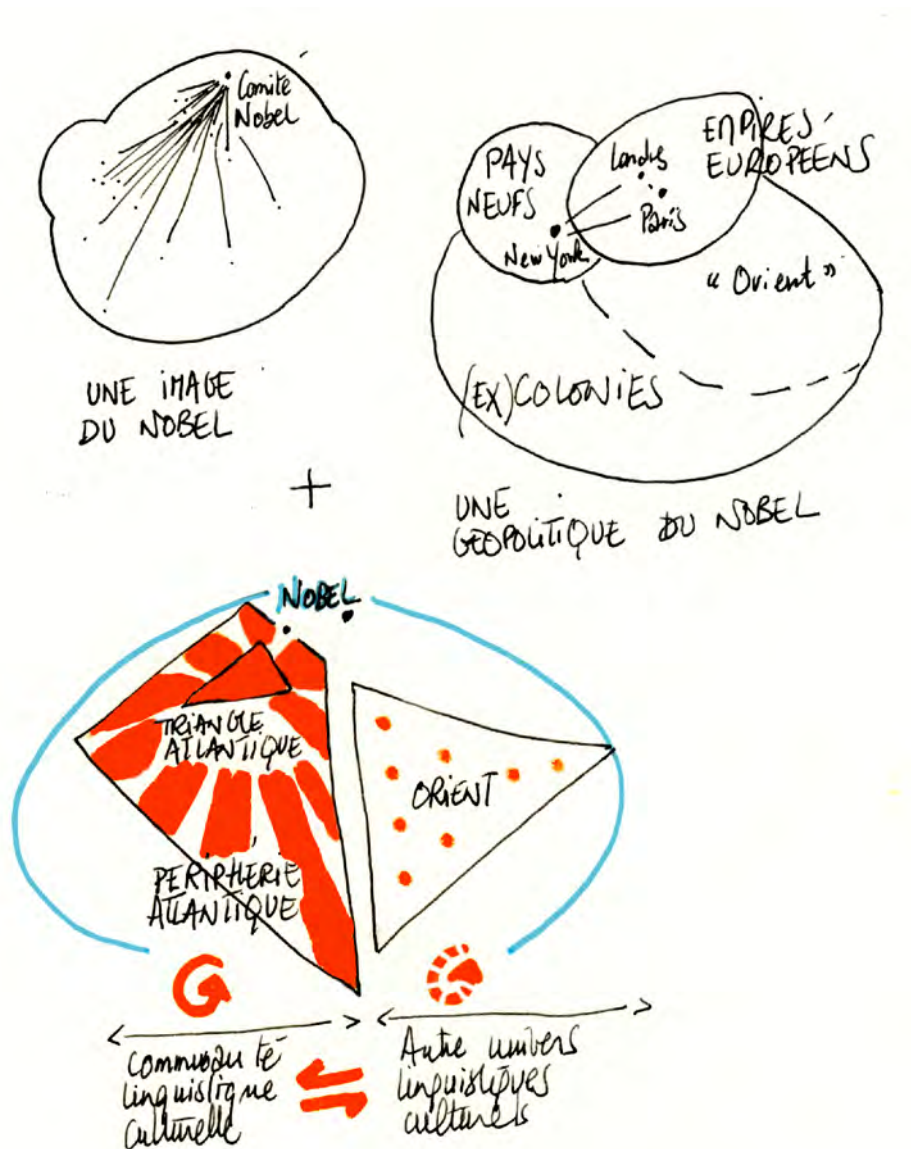 Comité
Nobel
UNE IMAGE
DU NOBEL
PAYS
NEUFS
New York
EMPIRES
EUROPEENS
Londres
Paris
"Orient"
(EX)COLONIES
UNE
GEOPOLITIQUE DU NOBEL
+
NOBEL
TRIANGLE
ATLANTIQUE
ORIENT
PERIPHERIE
ATLANTIQUE
Communauté
linguistique
culturelle
Autre univers
linguistiques
culturels